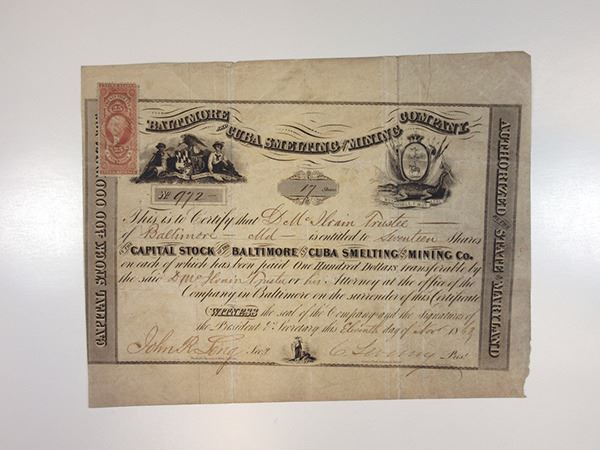 BALTIMORE AND CUBA SMELTING AND MINING COMPANY.
No 972
17 Shares
This is to Certify that D. McIlvain Trustee
of Baltimore Md is entitled to Seventeen Shares
of CAPITAL STOCK of the BALTIMORE AND CUBA SMELTING AND MINING Co.
on each of which has been paid One Hundred Dollars transferable by
the said D. McIlvain Trustee or his Attorney at the office of the
Company in Baltimore on the surrender of this Certificate
WITNESS the seal of the Company and the signatures of
the President & Secretary this Eleventh day of Nov 1869
John R. Secy.
Pres.
CAPITAL STOCK 400 000
AUTHORIZED BY THE STATE OF MARYLAND